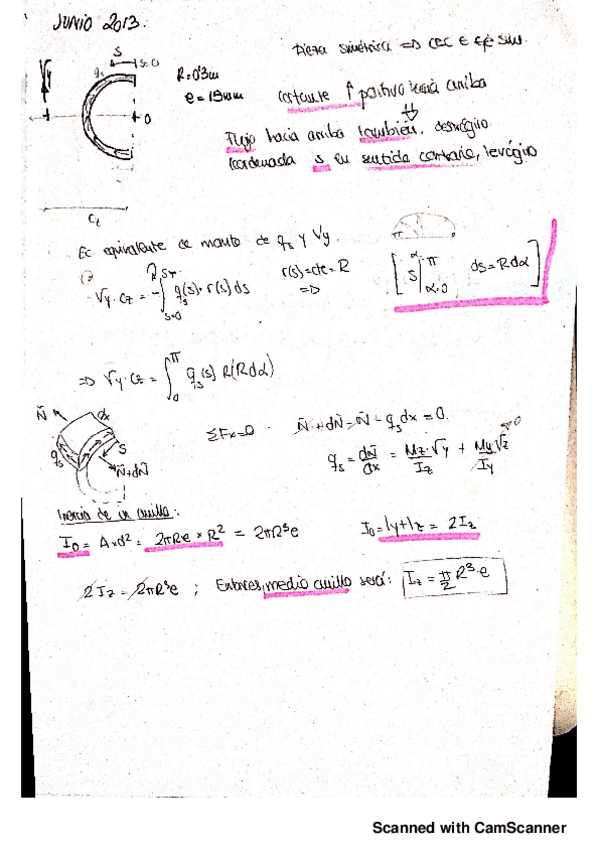 JUNIO 2013.
Pieza simétrica => CEC ∈ eje sim.
S
s=0
Vy
qs
R=0'3m
e=15mm
O
cortante ↑ positivo hacia arriba
Flujo hacia arriba también, dextrógiro
Coordenada s en sentido contrario, levógiro
Cz
Ec equivalente de momto de qs y Vy.
Vy·Cz = -∫ qs(s)·r(s)ds
s=0
r(s)=cte=R
=>
[ S | α=π α=0 , ds=Rdα ]
=> Vy·Cz = ∫₀^π qs(s) R(Rdα)
N̄
dx
S
qs
N̄+dN̄
ΣFx=0
N̄+dN̄-N̄-qs dx = 0.
qs = dN̄/dx = Mz·Vy/Iz + My Vz/Iy
0
Inercia de un anillo:
I₀ = A×d² = 2πRe × R² = 2πR³e
I₀=Iy+Iz = 2Iz
2Iz=2πR³e ; Entonces, medio anillo será: Iz = π/2 R³·e
Scanned with CamScanner